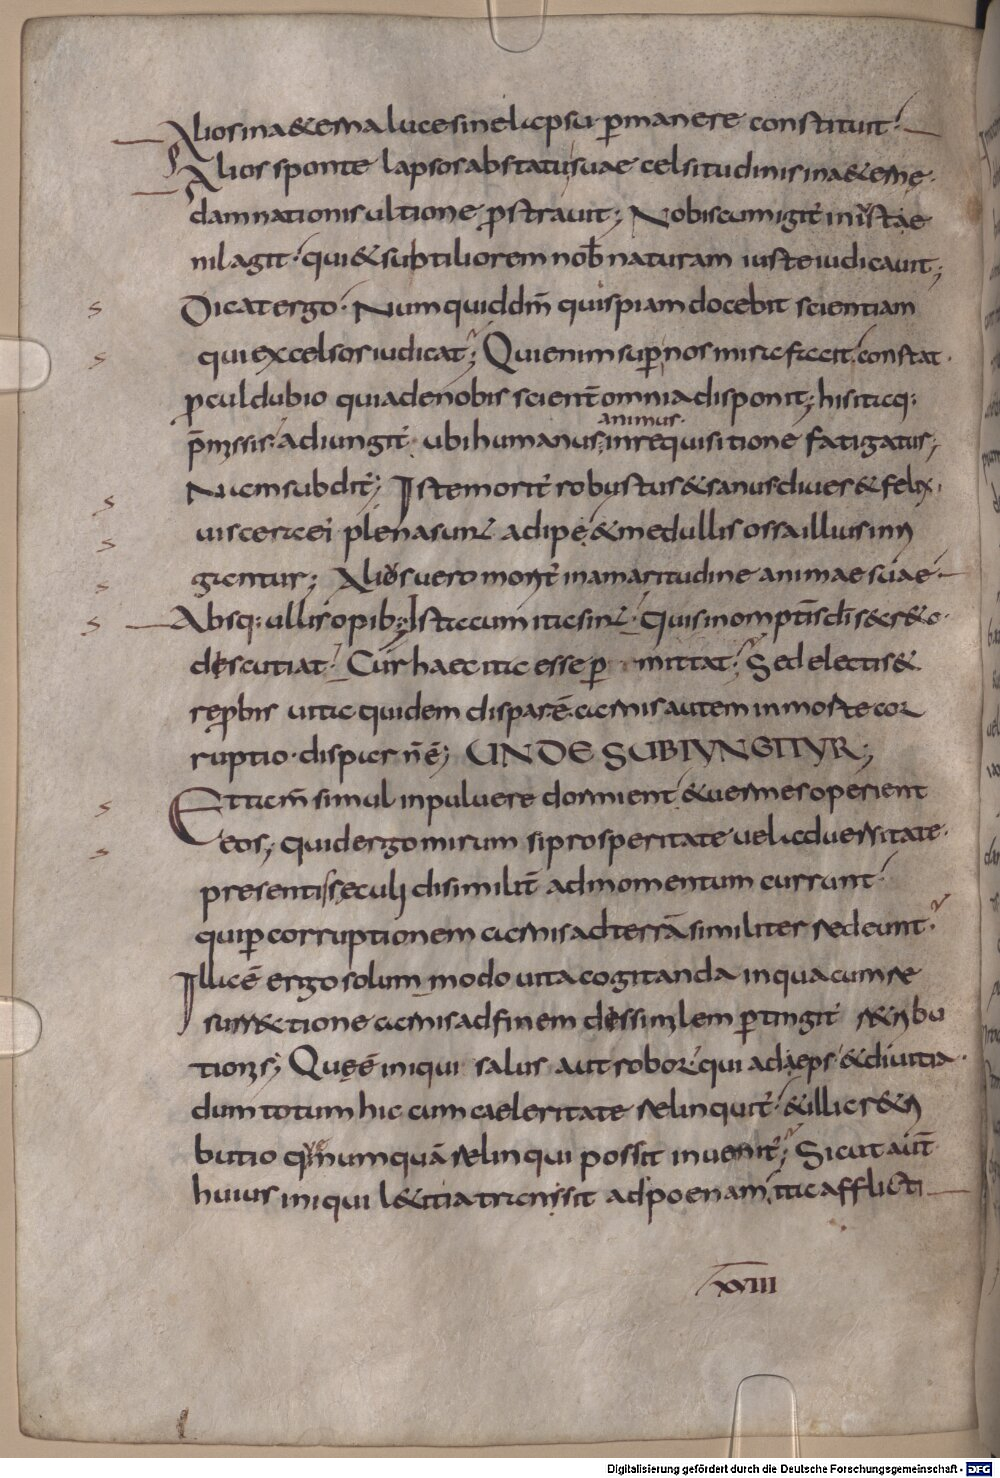 Alios ina&erna luce sine lapsu p̄manere constituit·
Alios sponte lapsos ab statu suae celsitudinis ina&erne·
damnationis ultione p̄stravit; Nobiscum igit̄ iniustae
nil agit· qui & subtiliorem nob̄ naturam iuste iudicavit;
Dicat ergo· Numquid dm̄ quispiam docebit scientiam
qui excelsos iudicat; Qui enim sup̄ nos mira facit· constat·
p̄cul dubio quia de nobis scient̄ omnia disponit; his itaq:
animus·
p̄missis· adiungit· ubi humanus inrequisitione fatigatus;
Nam subdit̄; Iste morit̄ robustus & sanus dives & felix·
viscera ei plena sunt adipe· & medullis ossa illius inri
gantur; Alios vero morit̄ in amaritudine animae suae·
Absq: ullis opib:; Ista cum ita sint· quis in omptīs dī s&r&o·
discutiat· Cur haec ita esse p̄mittat; Sed electis &
rep̄bis vita quidem dispar ē· carnis autem in morte cor
ruptio· dispar n̄ ē; UNDE SUBIUNGITUR;
Et tam̄ simul in pulvere dormient & vermes operient
eos; quid ergo mirum si prosperitate vel adversitate·
presentis seculi disimilit̄ ad momentum currunt·
qui p̄ corruptionem carnis ad terrā similiter redeunt·
Illa ē ergo solum modo vita cogitanda in qua cum re
surr&tione carnis ad finem dissimilem p̄tingit r&ribu
tionis; Quę ē iniqui salus aut robor· qui adaeps & divitia·
dum totum hic cum caeleritate relinquit̄· & illic r&ri
butio que numquā relinqui possit invenit̄; Sicut aut̄
huius iniqui l&itia transsit ad poenam ita afflicti
XVIII
Digitalisierung gefördert durch die Deutsche Forschungsgemeinschaft - DFG